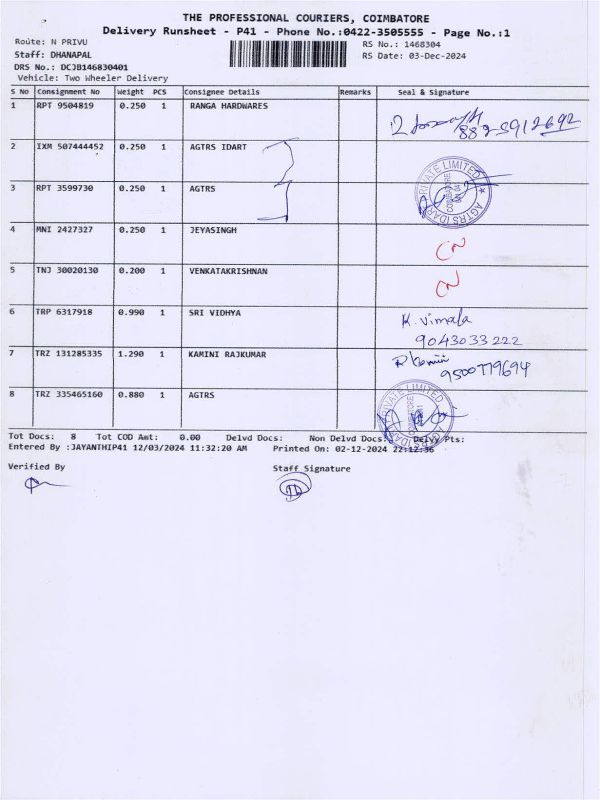 THE PROFESSIONAL COURIERS, COIMBATORE
Delivery Runsheet - P41 - Phone No.:0422-3505555 - Page No.:1
Route: N PRIVU
RS No.: 1468304
Staff: DHANAPAL
RS Date: 03-Dec-2024
DRS No.: DCJB146830401
Vehicle: Two Wheeler Delivery
S No Consignment No Weight PCS Consignee Details Remarks Seal & Signature
1 RPT 9504819 0.250 1 RANGA HARDWARES
2 IXM 507444452 0.250 1 AGTRS IDART
3 RPT 3599730 0.250 1 AGTRS
AGTRS IDART PRIVATE LIMITED
COIMBATORE
4 MNI 2427327 0.250 1 JEYASINGH CN
5 TNJ 30020130 0.200 1 VENKATAKRISHNAN CN
6 TRP 6317918 0.990 1 SRI VIDHYA K. Vimala
9043033222
7 TRZ 131285335 1.290 1 KAMINI RAJKUMAR
9500779694
8 TRZ 335465160 0.880 1 AGTRS
AGTRS IDART PRIVATE LIMITED
COIMBATORE
Tot Docs: 8 Tot COD Amt: 0.00 Delvd Docs: Non Delvd Docs: Delvy Pts:
Entered By :JAYANTHIP41 12/03/2024 11:32:20 AM Printed On: 02-12-2024 22:12:36
Verified By
Staff Signature